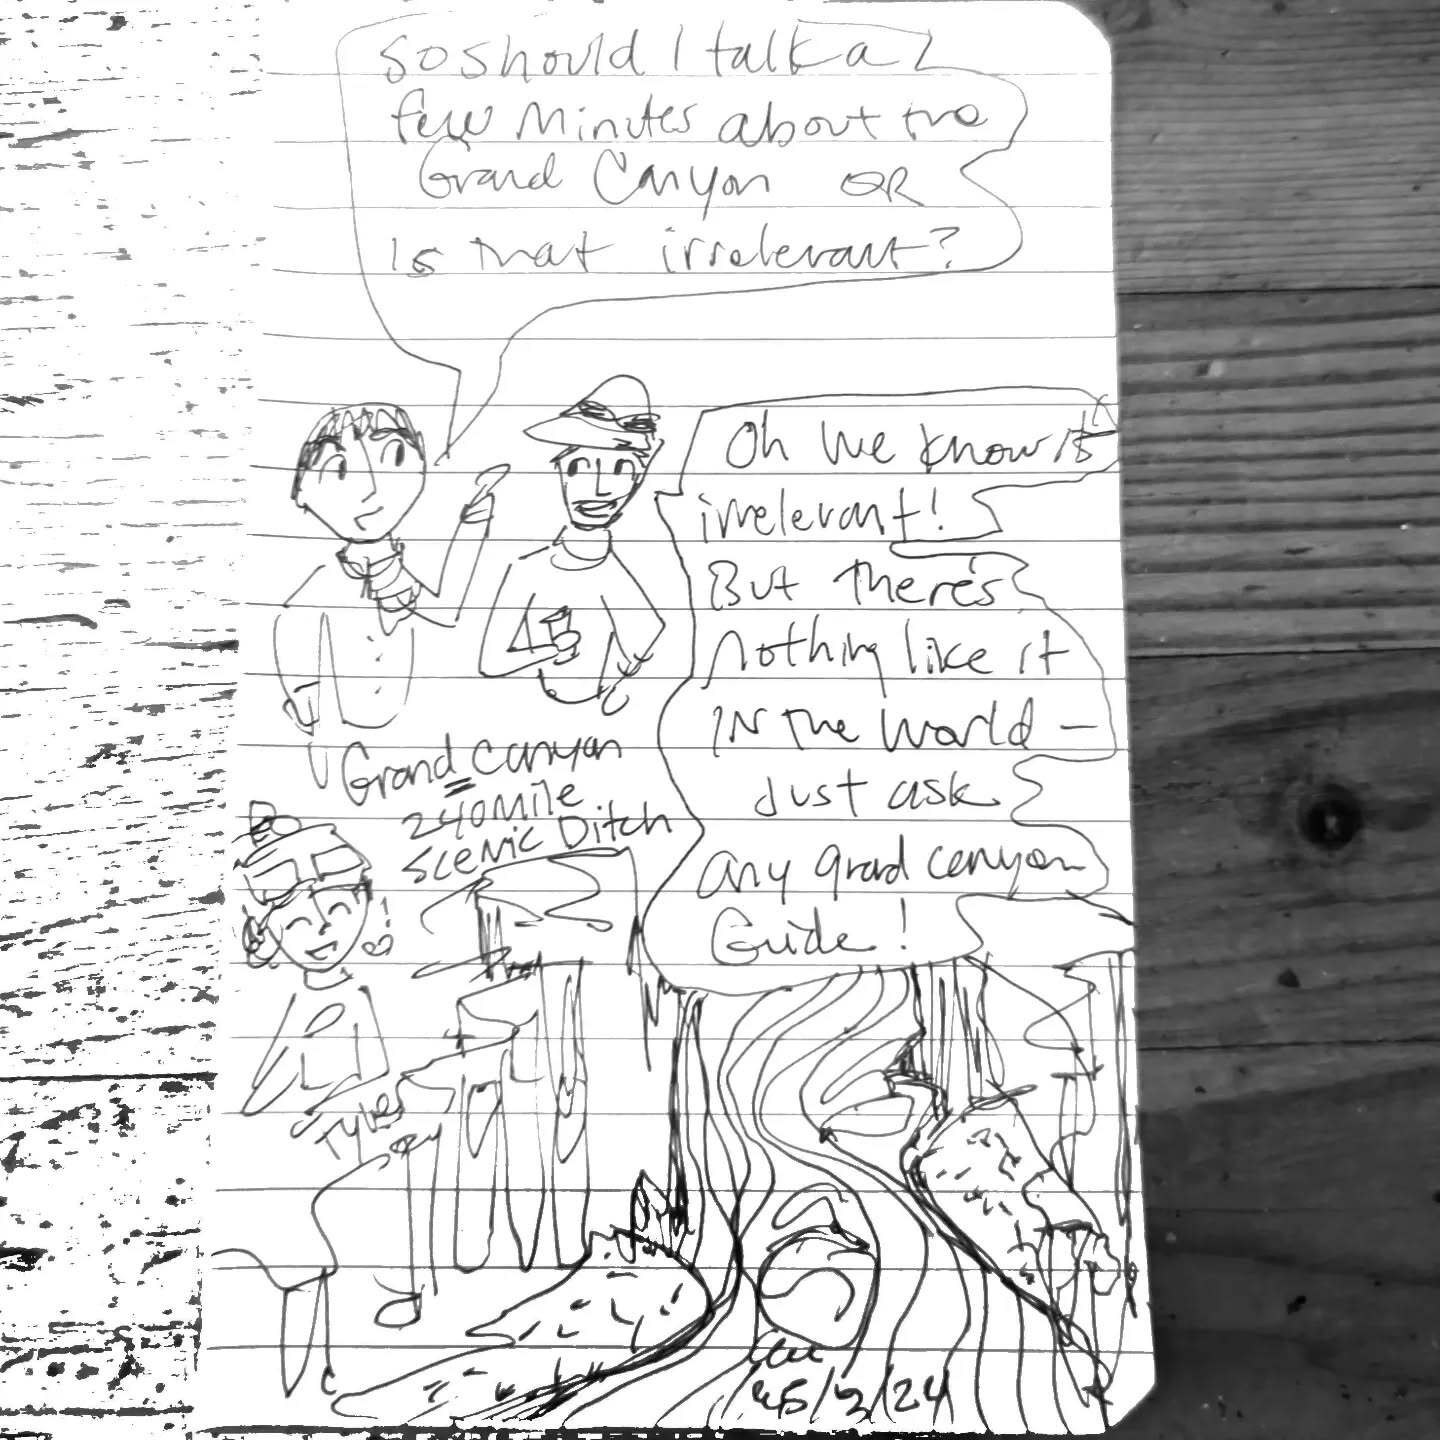 So should I talk a
few minutes about the
Grand Canyon OR
is that irrelevant?
Oh we know it's
irrelevant!
But there's
nothing like it
IN the world —
Just ask
any grad canyon
Guide!
Grand Canyon
240 Mile
Scenic Ditch
!
Tyler
5/3/24